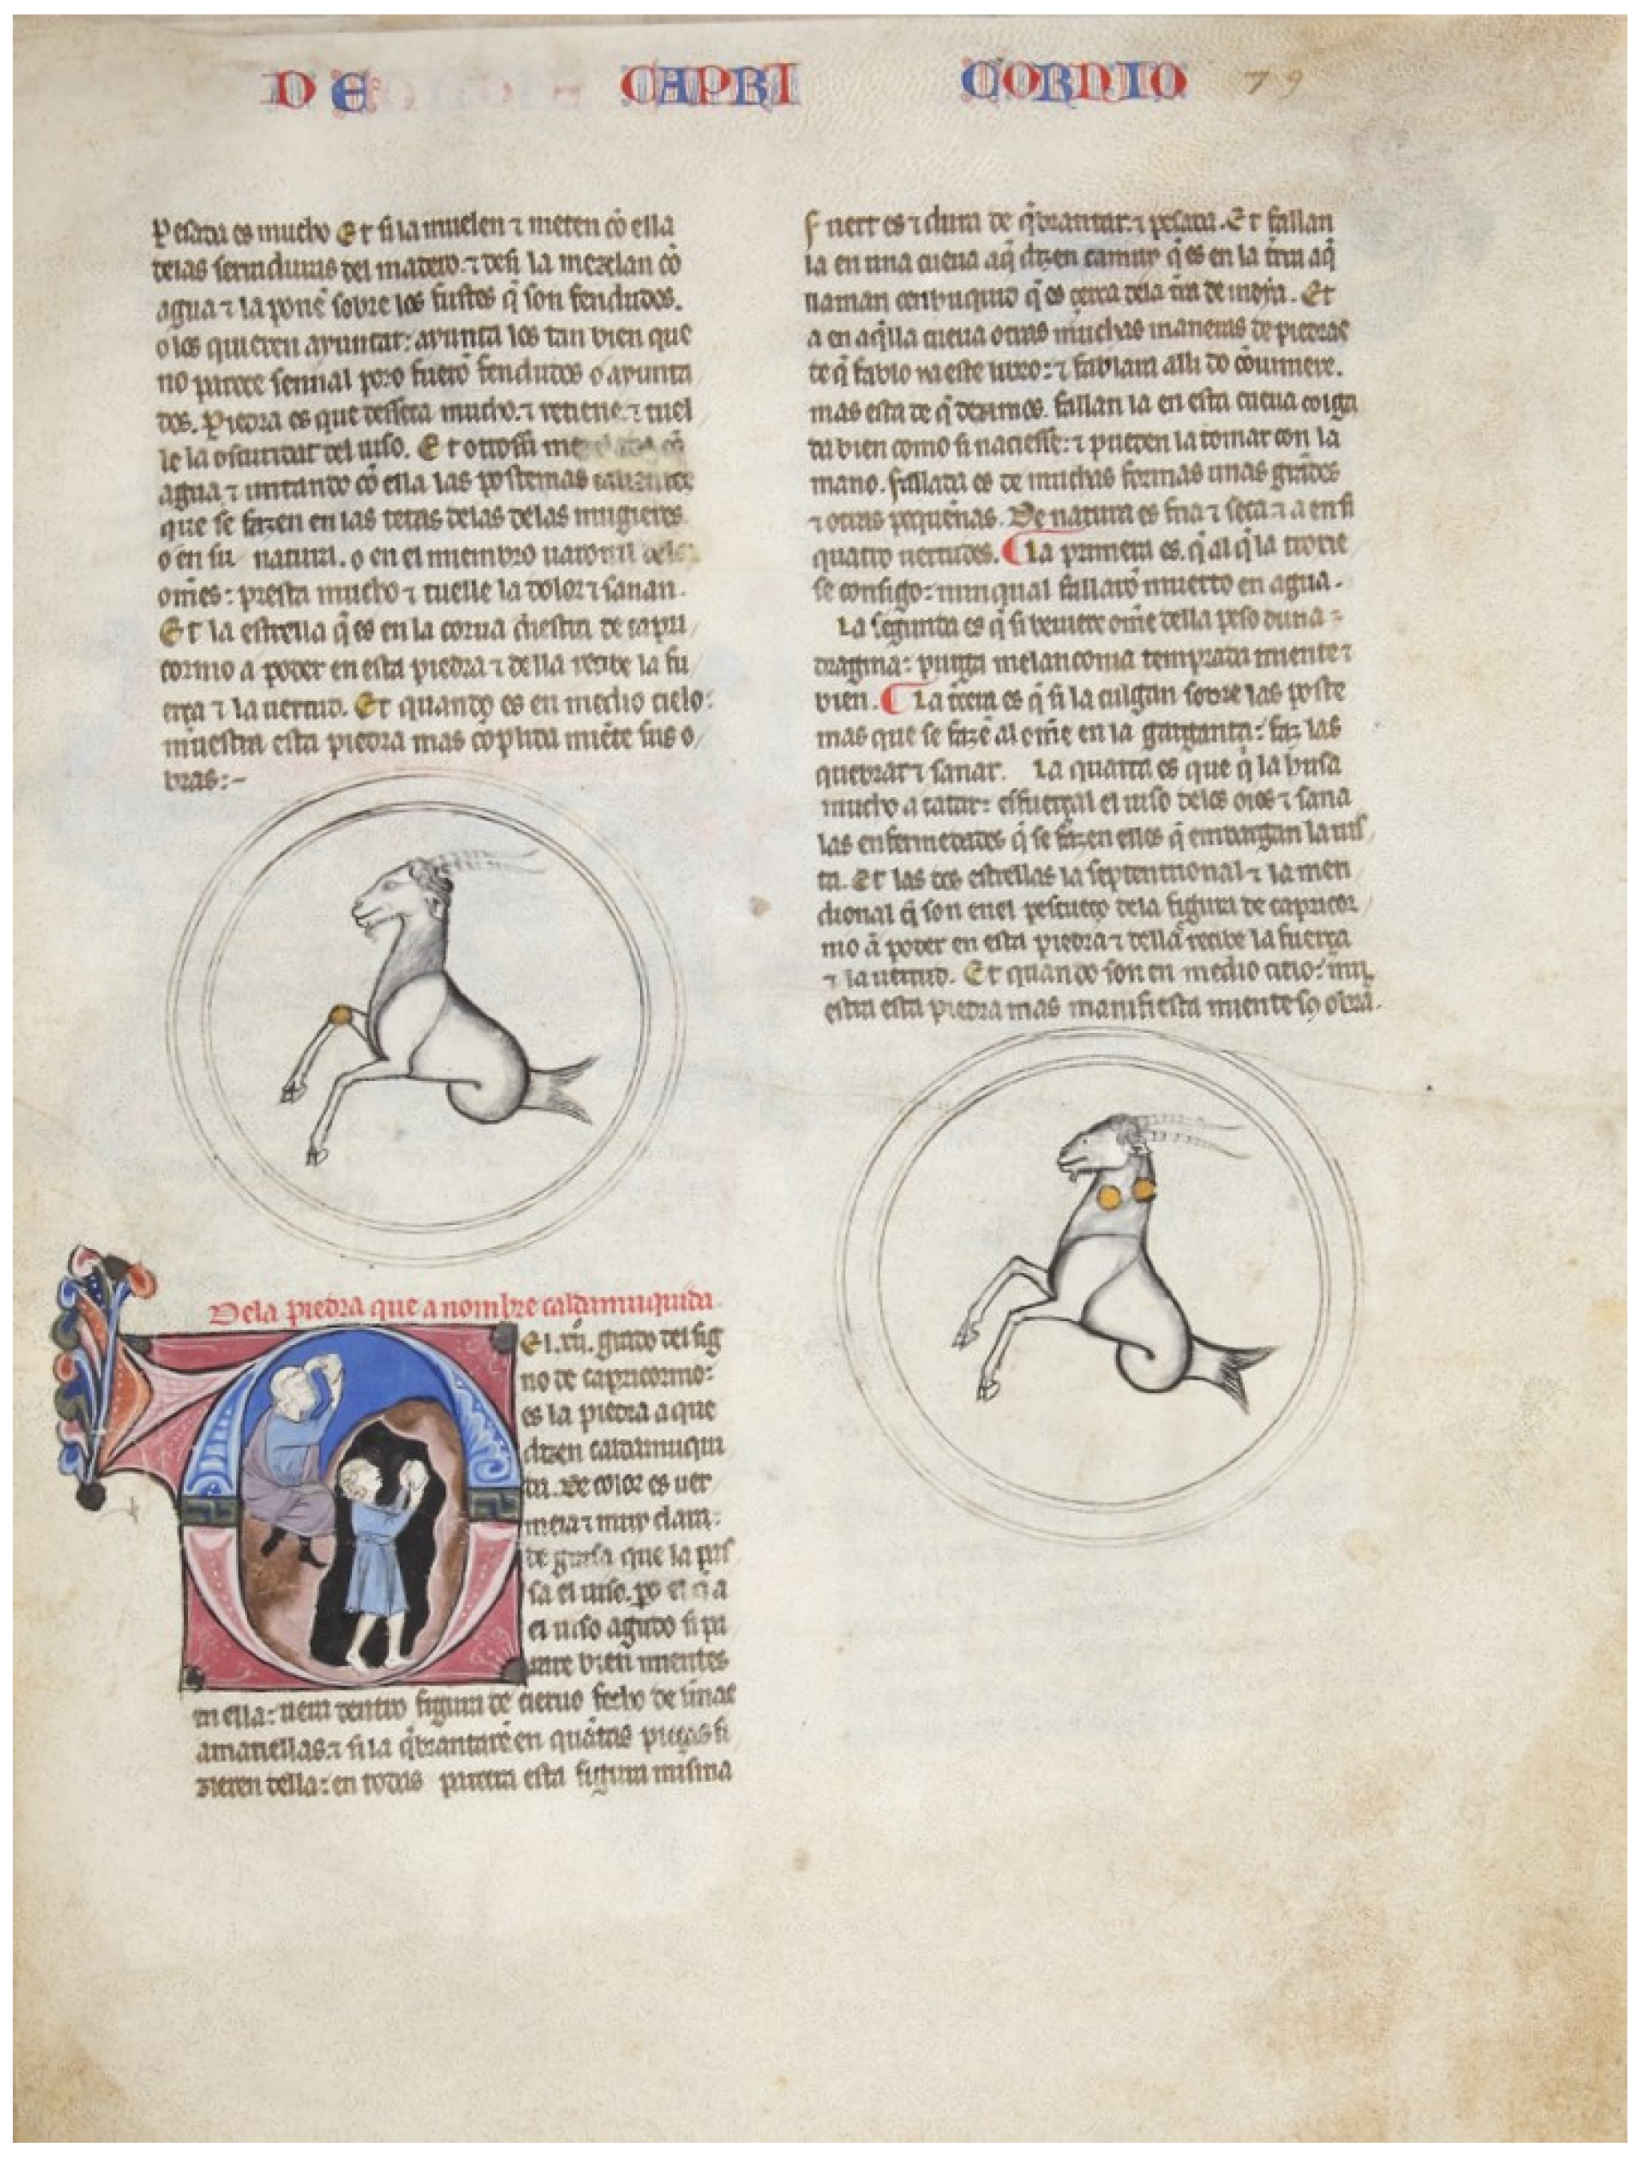 DE CAPRI CORNIO 79
Pesada es mucho Et si la muelen ⁊ meten cõ ella
delas serraduras del madero. ⁊ desi la mezclan cõ
agua ⁊ la ponẽ sobre los fustes q̃ son fendudos.
o los quieren ayuntar: ayunta los tan bien que
no parece sennal poro fuerõ fendudos o ayunta
dos. Piedra es que desseca mucho. ⁊ retiene. ⁊ tuel
le la oscuridat del uiso. Et otrossi
agua ⁊ untando cõ ella las postemas
que se fazen en las tetas delas delas mugieres
o en su natura. o en el miembro uaronil
om̃es: presta mucho ⁊ tuelle la dolor ⁊ sanan.
Et la estrella q̃ es en la corua diestra de capri
cornio a poder en esta piedra ⁊ della recibe la fu
erça ⁊ la uertud. Et quando es en medio cielo:
muestra esta piedra mas cõplida miẽte sus o
bras:-
Dela piedra que a nombre caldamuquida.
El .xii. grado del sig
no de capricornio:
es la piedra a que
dizen caldamuqui
da. De color es uer
meia ⁊ muy clara:
de guisa que la pas
sa el uiso. po el q̃ a
el uiso agudo si pa
rare bien mientes
en ella: uera dentro figura de cieruo fecho de linnas
amariellas. ⁊ si la q̃brantarẽ en quãtas pieças fi
zieren della: en todas parecra esta figura misma
Fuert es ⁊ dura de q̃brantar. ⁊ pesada. Et fallan
la en una cueua a q̃ dizen camur q̃ es en la tr̃ra a q̃
llaman q̃ es çerca dela tr̃ra de meia. Et
a en aq̃lla cueua otras muchas maneras de piedras
de q̃ fablo ya este libro: ⁊ fablara alli do cõuiniere.
mas esta de q̃ dezimos. fallan la en esta cueua colga
da bien como si naciesse: ⁊ pueden la tomar con la
mano. fallada es de muchas formas unas grãdes
⁊ otras pequennas. De natura es fria ⁊ seca. ⁊ a en si
quatro uertudes. La primera es. q̃ al q̃ la troxie
se consigo: nunqual fallarõ muerto en agua.
La segunda es q̃ si beuiere om̃e della peso duna
dragma: purga melanconia temprada miente ⁊
bien. La tercera es q̃ si la culgan sobre las poste
mas que se fazẽ al om̃e en la garganta: faz las
quebrar ⁊ sanar. La quarta es que q̃ la husa
mucho a catar: esfuerçal el uiso delos oios ⁊ sana
las enfermedades q̃ se fazen ellos q̃ embargan la uis
ta. Et las dos estrellas la septentrional ⁊ la meri
dional q̃ son enel pescueço dela figura de capricor
nio ã poder en esta piedra ⁊ dellã recibe la fuerça
⁊ la uertud. Et quando son en medio cielo: mu
estra esta piedra mas manifiesta miente so obra.